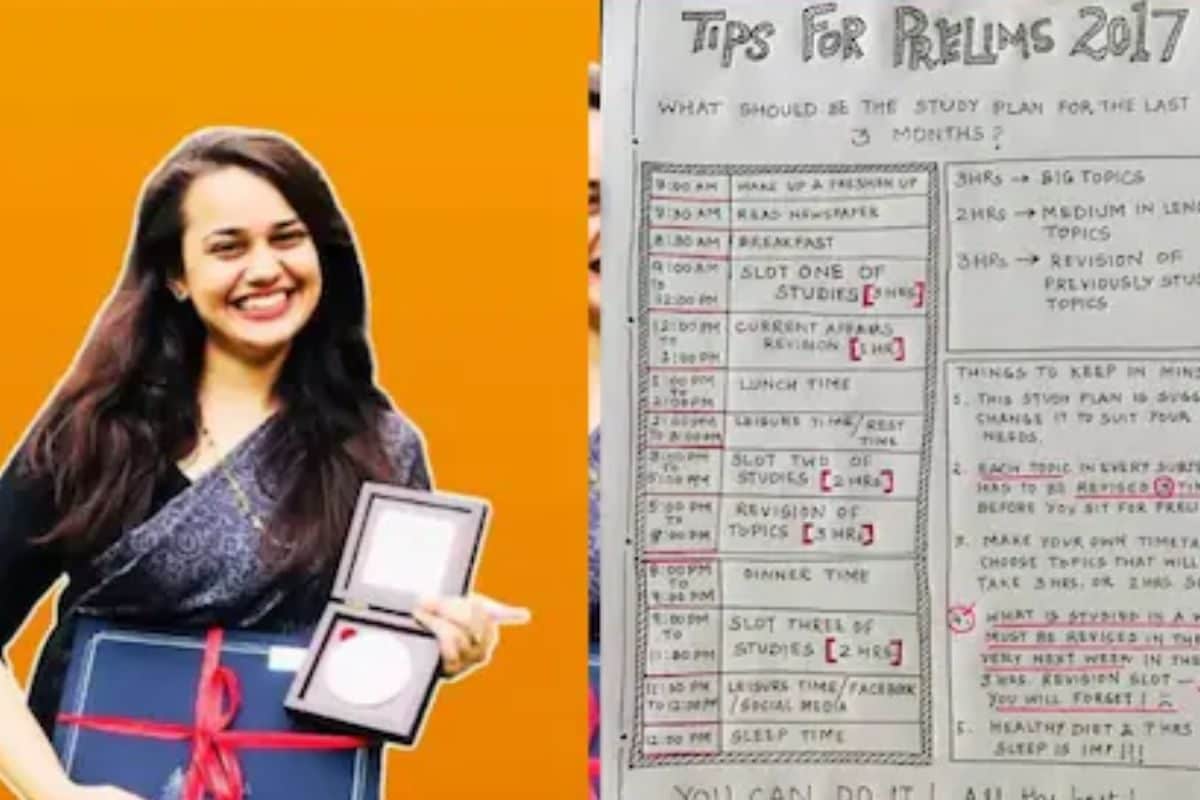 TIPS FOR PRELIMS 2017
WHAT SHOULD BE THE STUDY PLAN FOR THE LAST
3 MONTHS?
WAKE UP & FRESHEN UP
7:30 AM READ NEWSPAPER
8:30 AM BREAKFAST
9:00 AM
TO
12:00 PM
SLOT ONE OF
STUDIES [3 HRS]
12:00 PM
TO
1:00 PM
CURRENT AFFAIRS
REVISION [1 HR]
1:00 PM
TO
2:00 PM
LUNCH TIME
2:00 PM
TO 3:00 PM
LEISURE TIME/REST
TIME
3:00 PM
TO
5:00 PM
SLOT TWO OF
STUDIES [2 HRS]
5:00 PM
TO
8:00 PM
REVISION OF
TOPICS [3 HRS]
8:00 PM
TO
9:00 PM
DINNER TIME
9:00 PM
TO
11:30 PM
SLOT THREE OF
STUDIES [2 HRS]
11:30 PM
TO 12:00 PM
LEISURE TIME/FACEBOOK
/SOCIAL MEDIA
12:00 PM SLEEP TIME
3HRS → BIG TOPICS
2HRS → MEDIUM IN LENG
TOPICS
3HRS → REVISION OF
PREVIOUSLY STUD
TOPICS
THINGS TO KEEP IN MIND
1. THIS STUDY PLAN IS SUGG
CHANGE IT TO SUIT YOUR
NEEDS.
2. EACH TOPIC IN EVERY SUBJE
HAS TO BE REVISED 3 TIM
BEFORE YOU SIT FOR PRELI
3. MAKE YOUR OWN TIMETA
CHOOSE TOPICS THAT WILL
TAKE 3 HRS. OR 2 HRS. S
4. WHAT IS STUDIED IN A W
MUST BE REVISED IN THE
VERY NEXT WEEK IN THE
3 HRS. REVISION SLOT —
YOU WILL FORGET!
5. HEALTHY DIET & 7 HRS
SLEEP IS IMP!!!
YOU CAN DO IT! All the best!